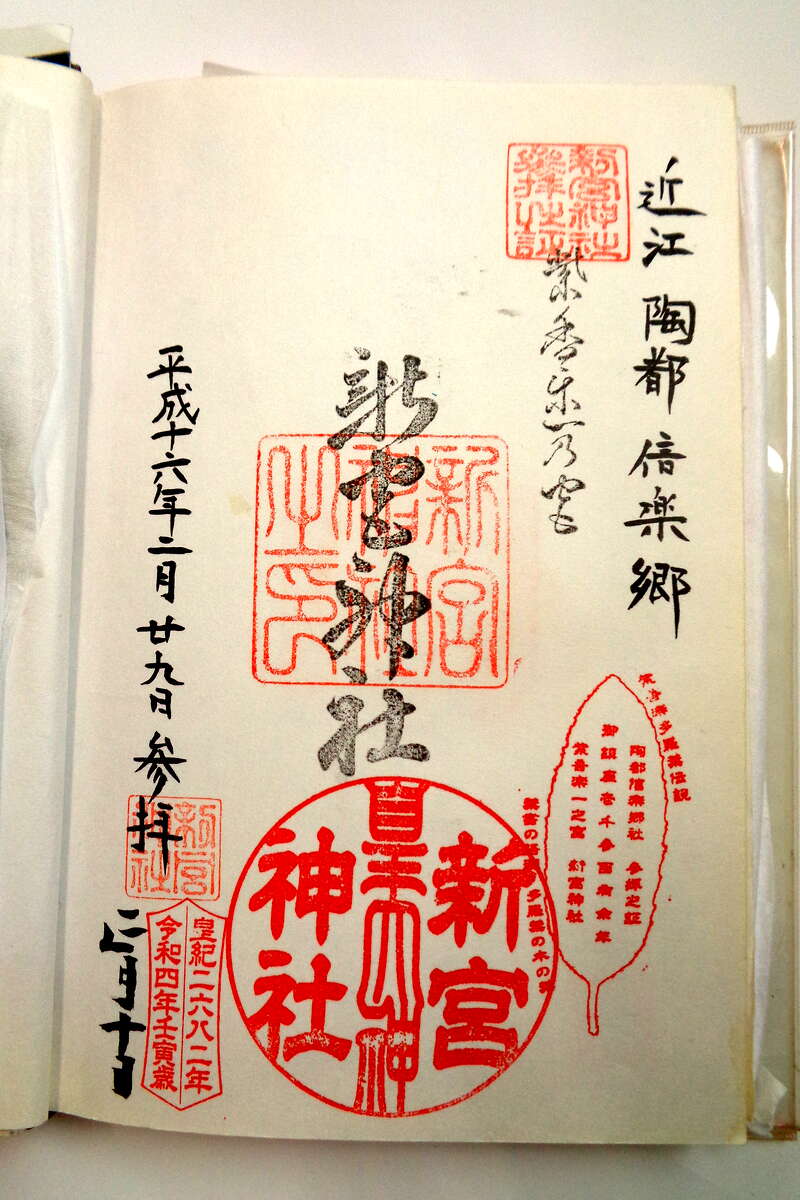 近江 陶都 信楽郷
新宮神社
参拝之証
紫香楽一乃宮
新宮神社
新宮神社
之印
平成十六年二月廿九日 参拝
新宮
神社
二月十日
皇紀二六八二年
令和四年壬寅歳
新宮
神社
陶都信楽郷社 参拝之証
御鎮座壱千参百有余年
紫香楽一之宮 新宮神社